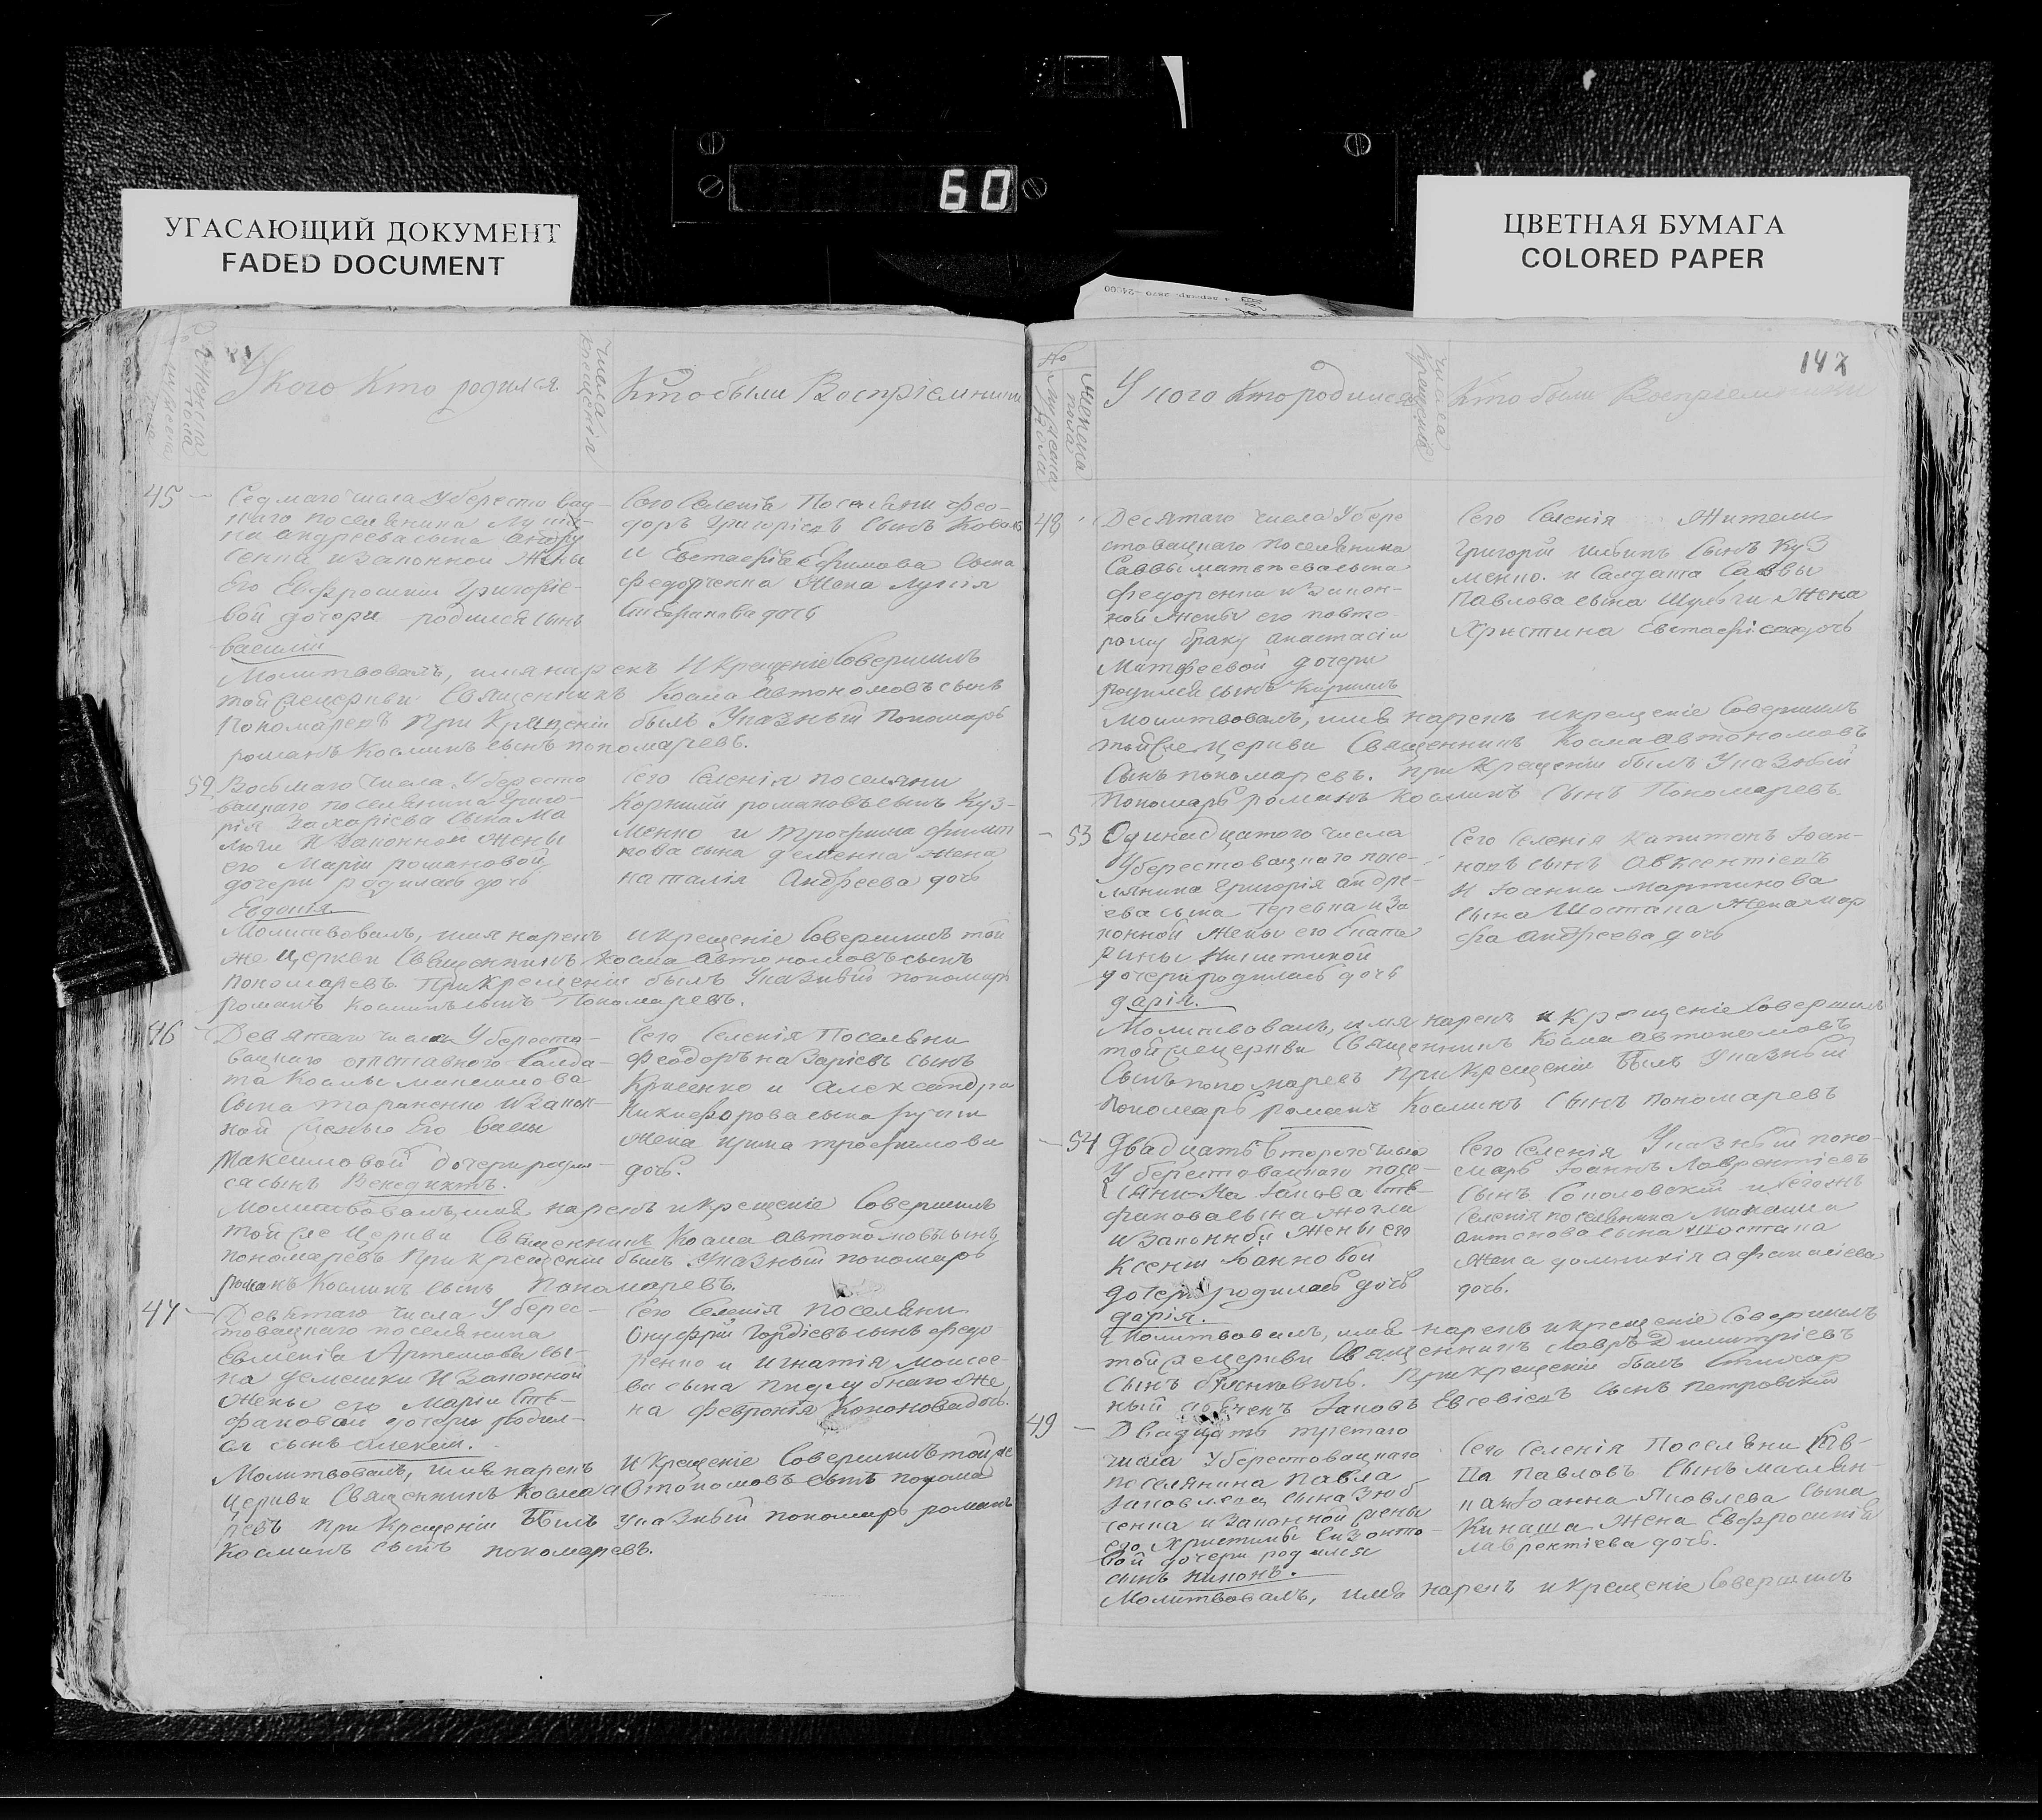 60
УГАСАЮЩИЙ ДОКУМЕНТ
FADED DOCUMENT
ЦВЕТНАЯ БУМАГА
COLORED PAPER
У кого Кто родился
числа крещенія
Кто были Воспріемники
45
Седмаго числа У берестовац-
каго поселянина
на андреева сына
сенка и законной жены
его Евфросиніи Григоріе-
вой дочери родился сынъ
василій
Сего Селенія Поселяни фео-
доръ Григоріевъ сынъ Коваль
и Евстафія Ефимова сына
федорченка жена
дочь
Молитвовалъ, имя нарекъ и крещеніе Совершилъ
той же церкви Священникъ Косма автономовъ сынъ
Пономаревъ При Крещеніи былъ Указный Пономарь
романъ Косминъ сынъ пономаревъ.
52
Восьмаго числа У бересто
вацкаго поселянина Григо-
рія Захаріева сына Ма
люги и законной жены
его Маріи романовой
дочери родилась дочь
Евдокія.
Сего Селенія поселяни
Корнилій романовъ сынъ Куз-
менко и трофима филип
пова сына деменка жена
наталія Андреева дочь
Молитвовалъ, имя нарекъ и крещеніе Совершилъ той
же церкви Священникъ Косма автономовъ сынъ
пономаревъ. При Крещеніи былъ Указный пономарь
романъ Косминъ сынъ Пономаревъ.
46
Девятаго числа У бересто-
вацкаго отставного Салда-
та Космы максимова
Сына тараненко и закон-
ной женой Его
Максимовой дочери родил-
ся сынъ Венедиктъ.
Сего Селенія Поселяни
феодоръ назаріевъ сынъ
и александра
Никифорова сына
жена ирина трофимова
дочь.
Молитвовалъ, имя нарекъ и крещеніе Совершилъ
той же Церкви Священникъ Косма автономовъ сынъ
пономаревъ При крещеніи былъ Указный пономарь
романъ Косминъ сынъ Пономаревъ.
47
Девятаго числа У берес-
товацкаго поселянина
Евменія Артемова сы-
на демешки и законной
жены его Маріи Сте-
фановой дочери родил-
ся сынъ алексій.
Сего Селенія поселяни
Онуфрій Гордіевъ сынъ федо
ренко и игнатія Моисее-
ва сына Пидлубнаго же
на феврокія Кононова дочь.
Молитвовалъ, имя нарекъ и Крещеніе Совершилъ той же
церкви Священникъ Косма автономовъ сынъ понома
ревъ при Крещеніи Былъ Указный пономарь романъ
Косминъ сынъ пономаревъ.
147
№
мужеска пола
женска пола
У кого Кто родился
числа крещенія
Кто были Воспріемники
48
Десятаго числа У бере
стовацкаго поселянина
Саввы матвеева сына
федоренка и закон-
ной жены его по вто-
рому браку анастасіи
Матфеевой дочери
родился сынъ Кириллъ
Сего Селенія Жители
Григорій сынъ Куз
менко. и Салдата Саввы
Павлова сына Шульги жена
Христина Евстафіева дочь
Молитвовалъ, имя нарекъ и крещеніе Совершилъ
той же церкви Священникъ Косма автономовъ
Сынъ пономаревъ. При Крещеніи былъ Указный
Пономарь романъ Косминъ Сынъ Пономаревъ.
53
Одинадцатаго числа
У берестовацкаго посе-
лянина Григорія андре-
ева сына и за
конной жены его Екате
рины Никитиной
дочери родилась дочь
дарія.
Сего Селенія Капитонъ Іоан-
новъ сынъ Авксентіевъ
и Іоанна Мартинова
сына Шостака жена мар
фа андреева дочь
Молитвовалъ, имя нарекъ и крещеніе Совершилъ
той же церкви Священникъ Косма автономовъ
Сынъ пономаревъ при Крещеніи Былъ Указный
Пономарь романъ Косминъ Сынъ пономаревъ
54
Двадцать второго числа
У берестовацкаго посе-
лянина Іакова Сте-
фанова сына
и законной жены его
Ксеніи Іоанновой
дочери родилась дочь
дарія.
Сего Селенія Указный поно-
марь Іоаннъ Лаврентіевъ
Сынъ Соколовскій и
селенія поселянина
антонова сына шостака
жена домникія афанасіева
дочь.
Молитвовалъ, имя нарекъ и крещеніе Совершилъ
той же церкви Священникъ Лавръ Димитріевъ
Сынъ При крещеніи былъ
Іаковъ Евсевіевъ Сынъ петровскій
49
Двадцать третаго
числа У берестовацкаго
поселянина Павла
сына Зюб
сенка и законной жены
его Христины
вой дочери родился
сынъ Никонъ.
Сего Селенія Поселяни
Павловъ Сынъ маслен-
Іоанна Яковлева Сына
Кинаша жена Евфросинія
лаврентіева дочь.
Молитвовалъ, имя нарекъ и крещеніе Совершилъ